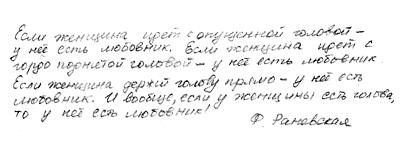 Если женщина идет с опущенной головой –
у неё есть любовник. Если женщина идет с
гордо поднятой головой – у неё есть любовник.
Если женщина держит голову прямо – у неё есть
любовник. И вообще, если у женщины есть голова,
то у неё есть любовник!
Ф. Раневская